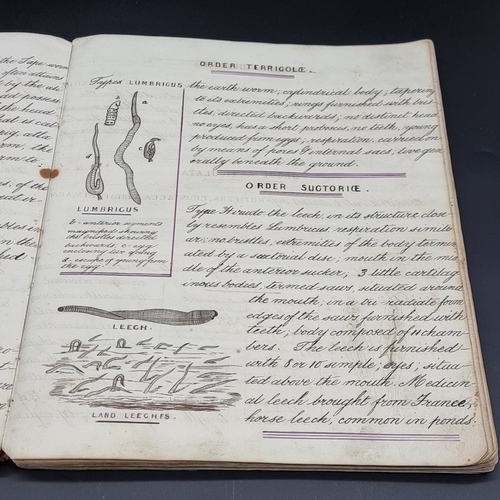 the Tape-worm
often allows
by the al
ad posses
the head
that is cal
alla
rm, the
rm to
s, of the
ORDER TERRIGOLŒ.
Types LUMBRIGUS
a
b
c
d
LUMBRIGUS
b - anterior segments
magnified showing
the bristles directed
backwards, c - egg
enclosing two young
d - escape of young from
the egg.
the earth worm; cylindrical body; tapering
to its extremities; rings furnished with bris
tles, directed backwards; no distinct head
no eyes, has a short proboscis, no teeth, young
produced from eggs; respiration, carried on
by means of pores & internal sacs, live gen
erally beneath the ground.
ORDER SUGTORIŒ.
Type Hirudo the leech, in its structure close
ly resembles Lumbricus, respiration simil
ar, no bristles, extremities of the body termin
ated by a suctorial disc, mouth in the mid
dle of the anterior sucker, 3 little cartilag
inous bodies, termed saws, situated around
the mouth, in a tri-radiate form
edges of the saws furnished with
teeth; body composed of cham
bers. The leech is furnished
with 8 or 10 simple, eyes, situa-
ted above the mouth. Medicin
al leech brought from France,
horse leech, common in ponds.
LEECH.
LAND LEECHES.